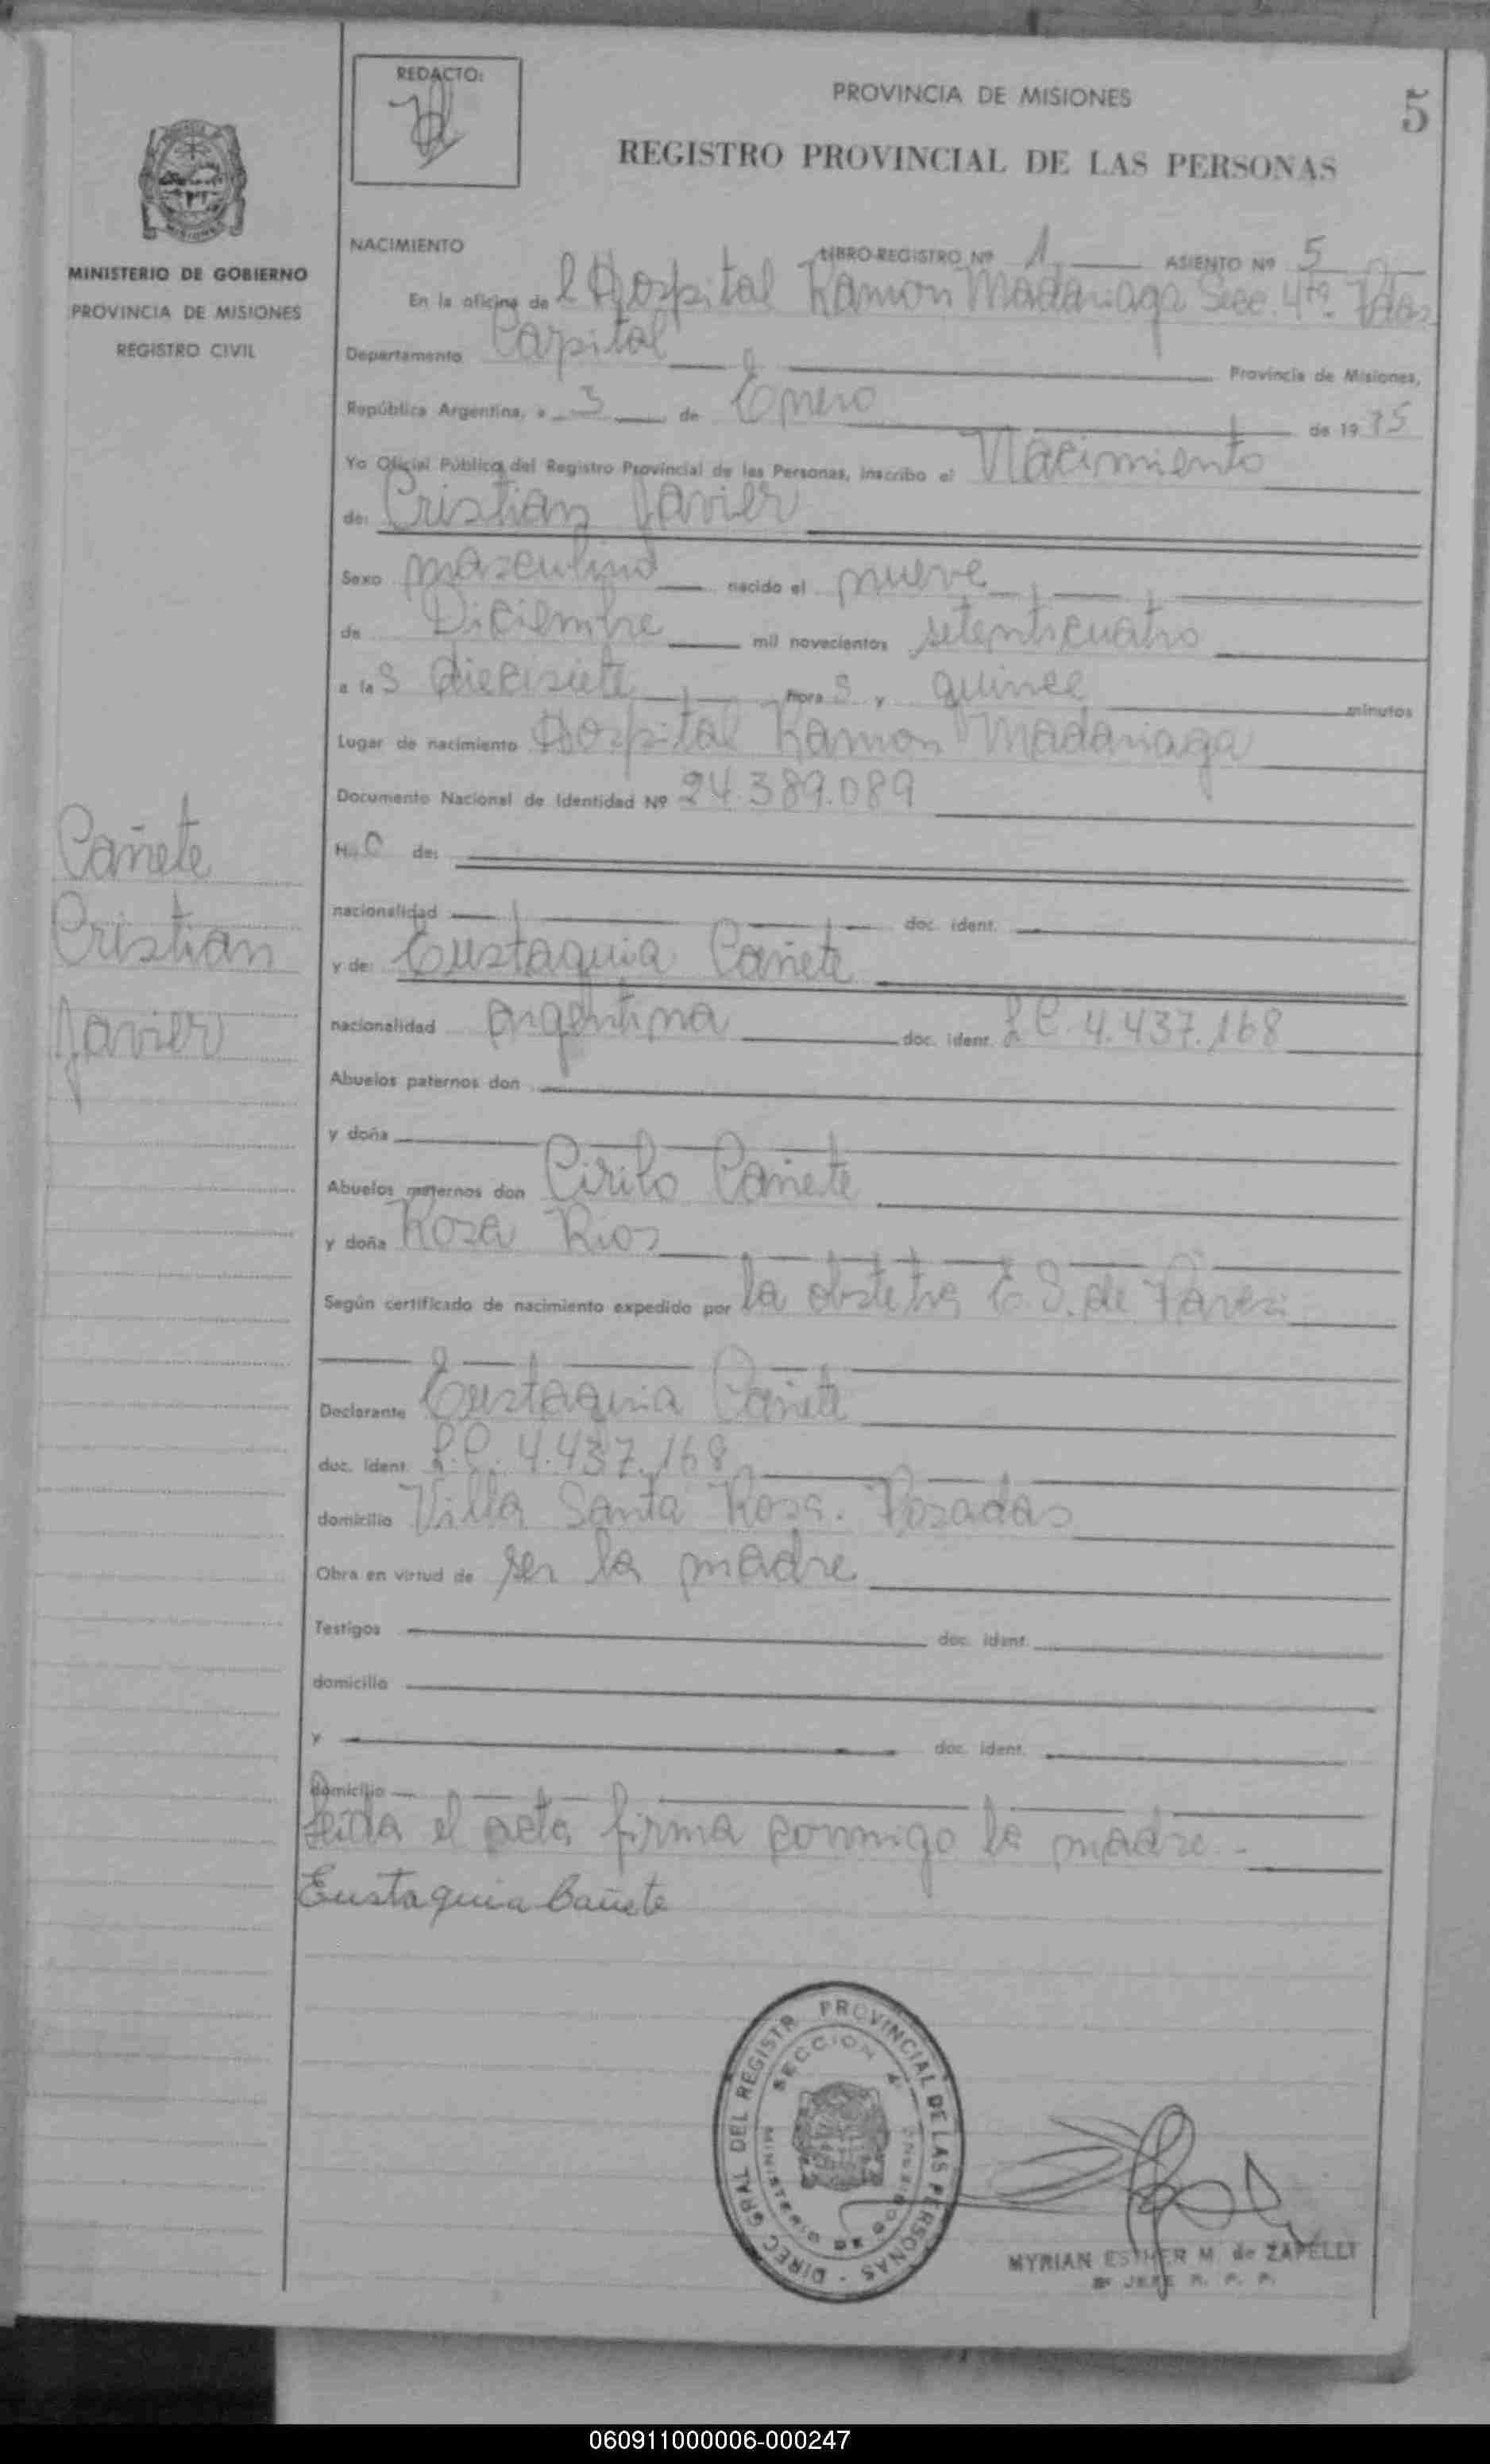 REDACTO:
PROVINCIA DE MISIONES
5
REGISTRO PROVINCIAL DE LAS PERSONAS
MISIONES
MINISTERIO DE GOBIERNO
PROVINCIA DE MISIONES
REGISTRO CIVIL
NACIMIENTO LIBRO-REGISTRO Nº 1 ASIENTO Nº 5
En la oficina del Hospital Ramon Madariaga Secc. 4ta. Pdas
Departamento Capital Provincia de Misiones,
República Argentina, a 3 de Enero de 1975
Yo Oficial Público del Registro Provincial de las Personas, inscribo el Nacimiento
de: Cristian Javier
Sexo masculino nacido el nueve
de Diciembre mil novecientos setenticuatro
a las diecisiete horas y quince minutos
Lugar de nacimiento Hospital Ramon Madariaga
Documento Nacional de Identidad Nº 24.389.089
Cañete
Cristian
Javier
H. O de:
nacionalidad doc. ident.
y de: Eustaquia Cañete
nacionalidad argentina doc. ident. L C. 4.437.168
Abuelos paternos don
y doña
Abuelos maternos don Cirilo Cañete
y doña Rosa Rios
Según certificado de nacimiento expedido por la obstetra E. S. de
Declarante Eustaquia Cañete
doc. ident. L.C. 4.437.168
domicilio Villa Santa Rosa. Posadas
Obra en virtud de ser la madre
Testigos doc. ident.
domicilio
y doc. ident.
domicilio
Leida el acta firma conmigo la madre.-
Eustaquia Cañete
DIREC GRAL DEL REGISTR. PROVINCIAL DE LAS PERSONAS
SECCION 4
MINISTERIO DE GOBIERNO
MYRIAN ESTHER M. de ZAPELLI
JEFE R. P. P.
060911000006-000247